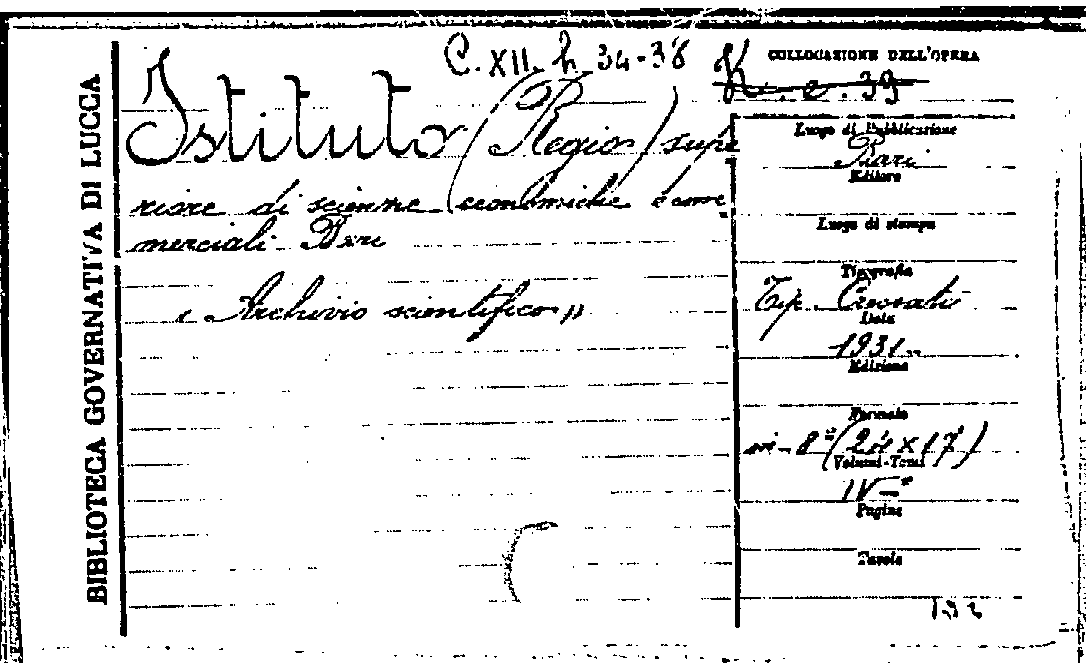 BIBLIOTECA GOVERNATIVA DI LUCCA
C. XII. h. 34-38
COLLOCAZIONE DELL'OPERA
K. e. 39
Istituto (Regio) supe
riore di scienze economiche e com
merciali Bari
« Archivio scientifico »
Luogo di Pubblicazione
Bari
Editore
Luogo di stampa
Tipografia
Tip. Cressati
Data
1931
Edizione
Formato
in-8º (24 x 17)
Volumi-Tomi
IV-
Pagine
Tavole